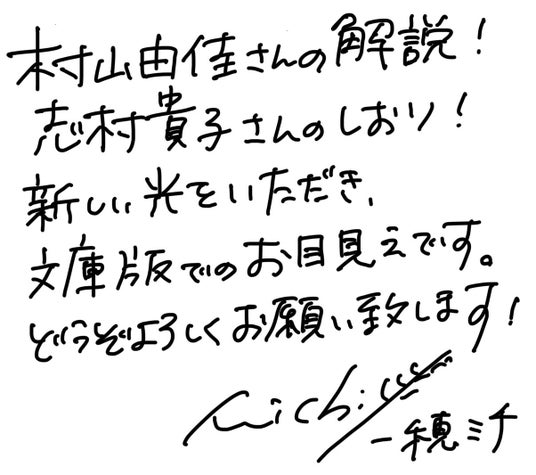 村山由佳さんの解説！
志村貴子さんのしおり！
新しい光をいただき、
文庫版でのお目見えです。
どうぞよろしくお願い致します！
Michi
一穂ミチ